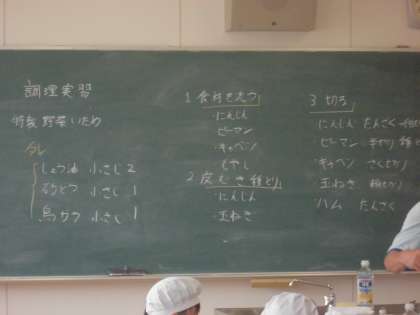 調理実習
特製野菜いため
タレ
しょう油 小さじ2
さとう 小さじ1
鳥ガラ 小さじ1
1 食材を洗う
・にんじん
・ピーマン
・キャベツ
・もやし
2 皮むき種とり
・にんじん
・玉ねぎ
3 切る
・にんじん たんざく
・ピーマン
・キャベツ ざく切り
・玉ねぎ
・ハム たんざく